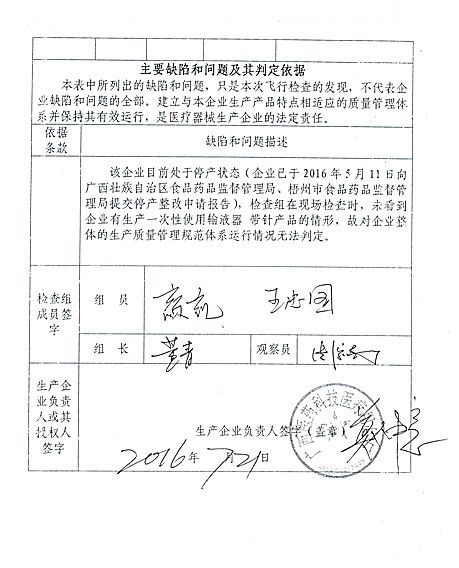 主要缺陷和问题及其判定依据
本表中所列出的缺陷和问题，只是本次飞行检查的发现，不代表企
业缺陷和问题的全部。建立与本企业生产产品特点相适应的质量管理体
系并保持其有效运行，是医疗器械生产企业的法定责任。
依据
条款
缺陷和问题描述
该企业目前处于停产状态（企业已于2016年5月11日向
广西壮族自治区食品药品监督管理局、梧州市食品药品监督管
理局提交停产整改申请报告），检查组在现场检查时，未看到
企业有生产一次性使用输液器 带针产品的情形，故对企业整
体的生产质量管理规范体系运行情况无法判定。
检查组
成员签
字
组 员
王忠国
组 长
董青
观察员
生产企
业负责
人或其
授权人
签字
生产企业负责人签字（盖章）
2016年7月21日